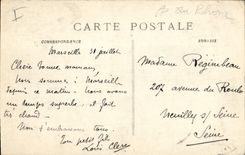 I
B. du Rhône
CARTE POSTALE
CORRESPONDANCE
ADRESSE
Marseille 31 juillet
Chère bonne maman,
Nous sommes à Marseille
depuis ce matin. Nous avons
un temps superbe, il fait
très chaud.
Nous t'embrassons tous.
Ton petit fils
Louis
Madame Régimbeau
207 avenue du Roule
Neuilly s/ Seine
Seine